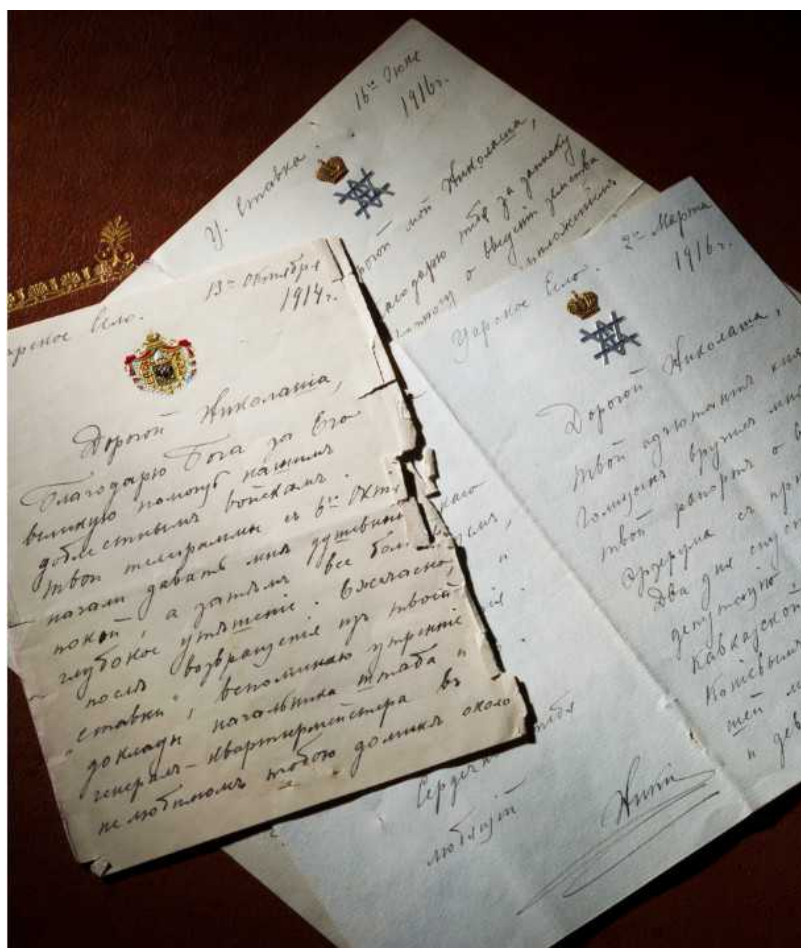 Ц. Ставка.
16го Июня
1916г.
Дорогой мой Николаша,
Благодарю тебя за записку
о введении земства
13го Октября
1914г.
Царское Село.
Дорогой Николаша,
Благодарю Бога за Его
великую помощь нашимъ
доблестнымъ войскамъ.
Твои телеграммы съ 6го Окт
начали давать мнѣ душевный
покой, а затѣмъ все бол
глубокое утѣшеніе. Ежечасно,
послѣ возвращенія изъ твоей
"ставки", вспоминаю утренніе
доклады начальника штаба и
генералъ-квартирмейстера въ
нелюбимомъ тобою домикѣ около
2го Марта
1916г.
Царское Село.
Дорогой Николаша,
Твой адъютантъ кня
Голицынъ вручилъ мнѣ
твой рапортъ о в
Эрзерума съ при
Два дня спуст
депутацію
Кавказской
Кошевымъ
шей
и дев
Сердечно тебя
любящій
Ники